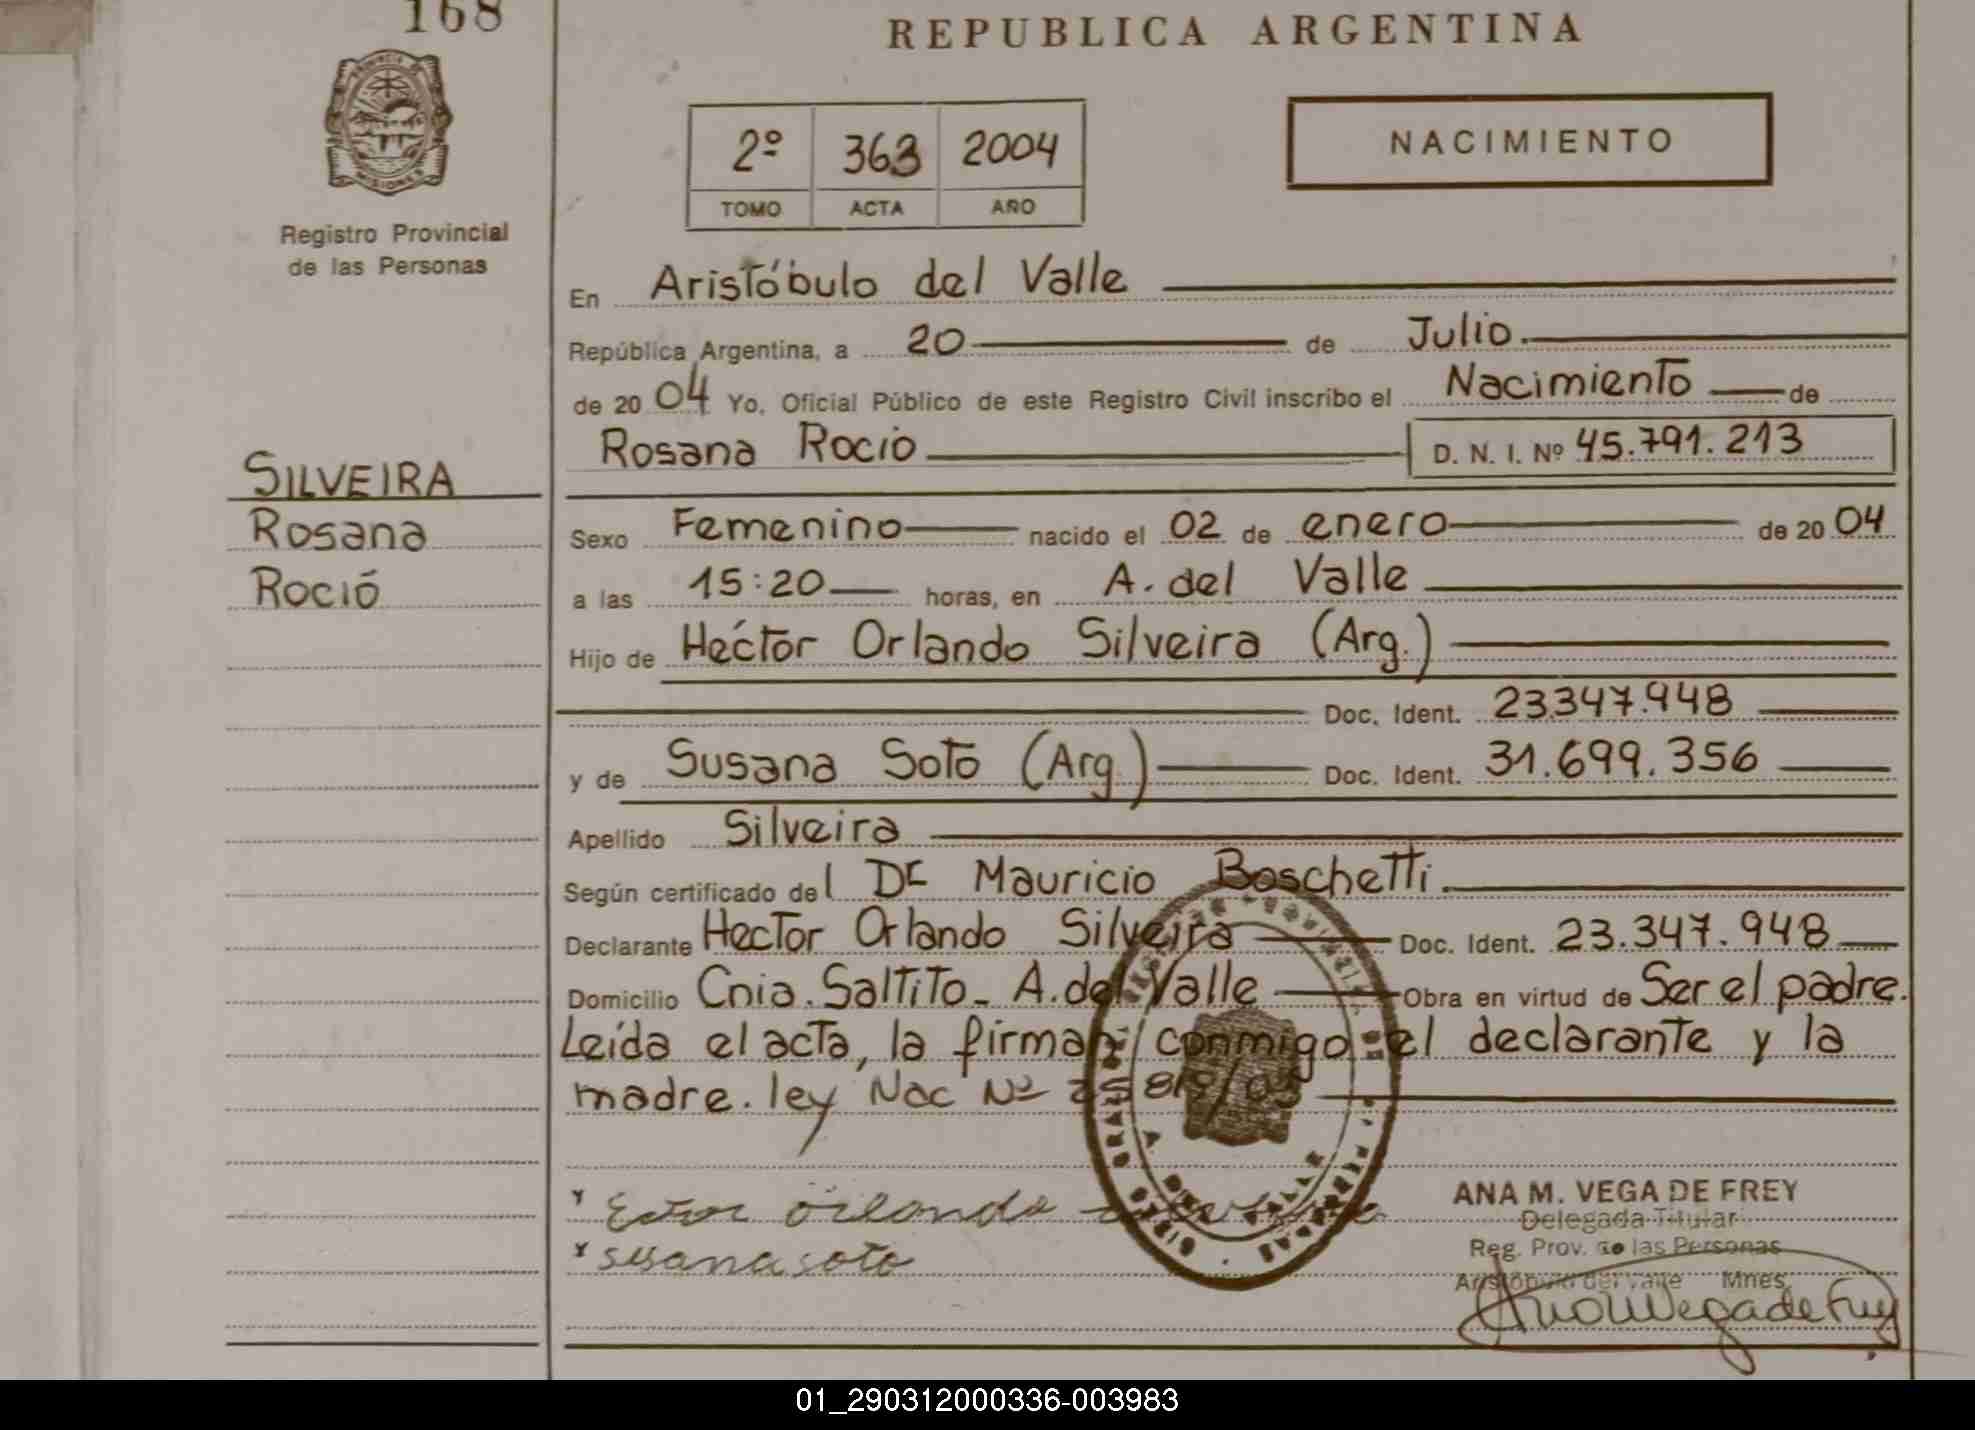 168
REPUBLICA ARGENTINA
PROVINCIA DE
MISIONES
Registro Provincial
de las Personas
2º 363 2004
TOMO ACTA AÑO
NACIMIENTO
En Aristóbulo del Valle
República Argentina, a 20 de Julio.
de 20 04 Yo, Oficial Público de este Registro Civil inscribo el Nacimiento de
Rosana Rocio D. N. I. Nº 45.791.213
SILVEIRA
Rosana
Roció
Sexo Femenino nacido el 02 de enero de 20 04
a las 15:20 horas, en A. del Valle
Hijo de Héctor Orlando Silveira (Arg.)
Doc. Ident. 23.347.948
y de Susana Soto (Arg.) Doc. Ident. 31.699.356
Apellido Silveira
Según certificado del Dr Mauricio Boschetti.
Declarante Hector Orlando Silveira Doc. Ident. 23.347.948
Domicilio Cnia. Saltito - A. del Valle Obra en virtud de Ser el padre.
Leída el acta, la firman conmigo el declarante y la
madre. ley Nac Nº 25819/03
orlando
susana soto
ANA M. VEGA DE FREY
Delegada Titular
Reg. Prov. de las Personas
Aristóbulo del Valle Mnes.
Ana M Vega de Frey
01_290312000336-003983